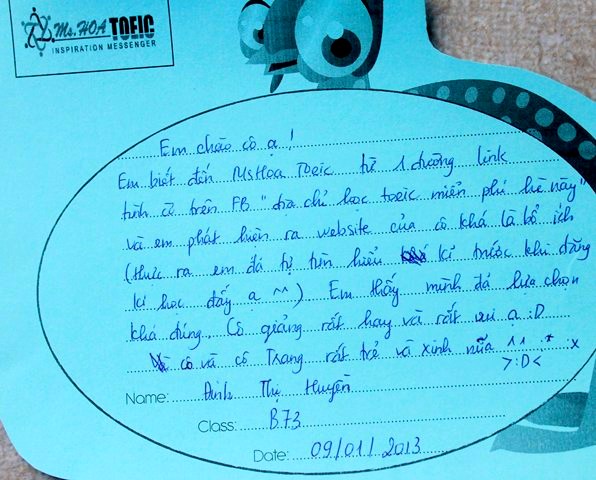 Ms.HOA TOEIC
INSPIRATION MESSENGER
Em chào cô ạ!
Em biết đến MsHoa Toeic từ 1 đường link
tình cờ trên FB "địa chỉ học toeic miễn phí hè này"
và em phát hiện ra website của cô khá là bổ ích
(thực ra em đã tự tìm hiểu kĩ trước khi đăng
kí học đấy ạ ^^) Em thấy mình đã lựa chọn
khá đúng. Cô giảng rất hay và rất vui ạ :D
cô và cô Trang rất trẻ và xinh nữa ^^ :* :x
>:D<
Name: Đinh Thị Huyền
Class: B73
Date: 09/01/2013